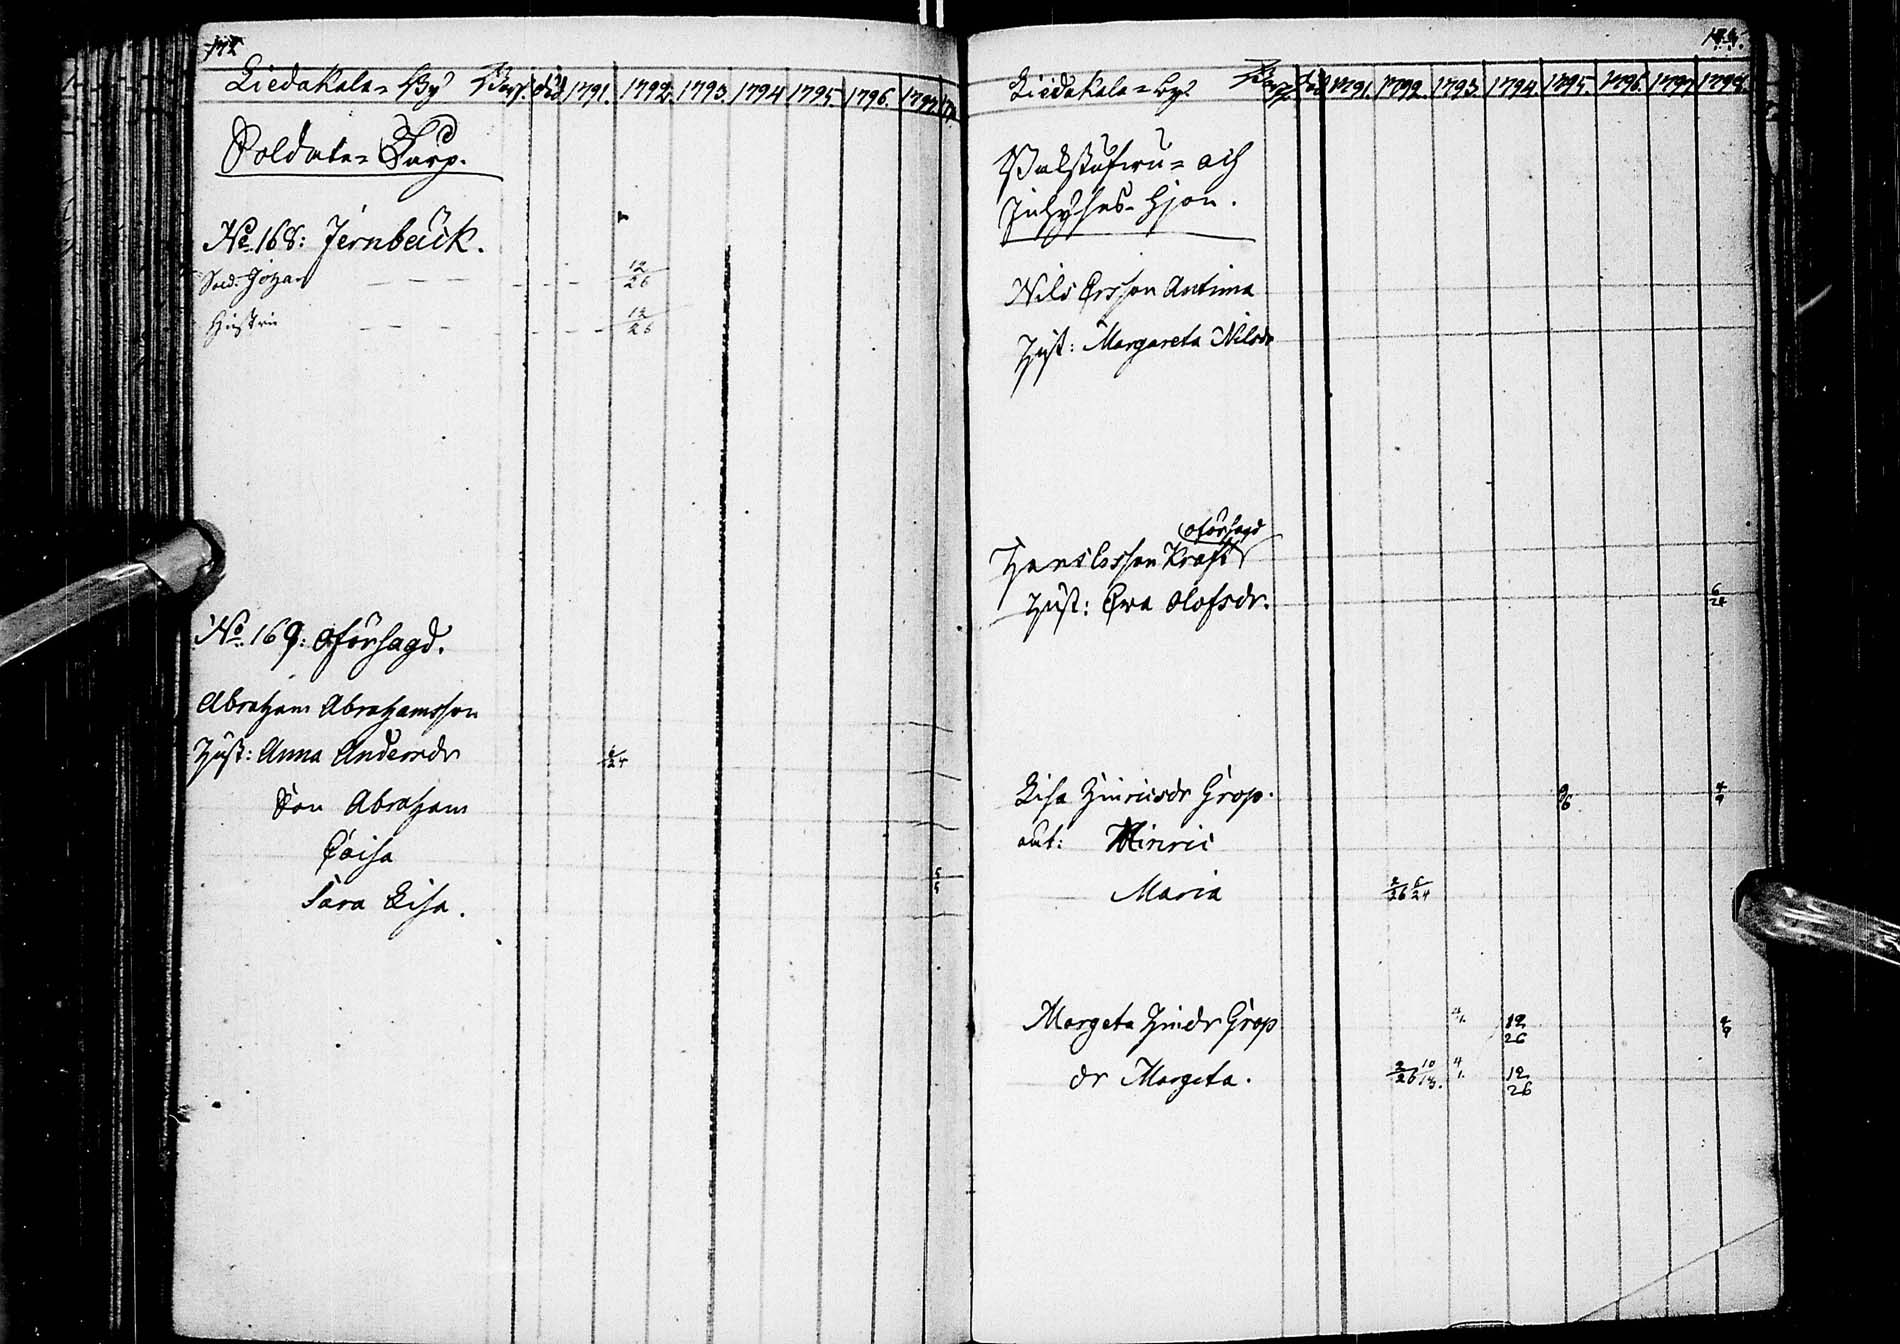 Liedakala=By 1791. 1792. 1793. 1794 1795 1796. 1797
Soldate=Torp.
No. 168: Jernbäck.
Sold: Johan 12/26
Hustru 12/26
No. 169: Oförsagd.
Abraham Abrahamsson
Hust: Anna Andersdr 6/24
Son Abraham
Caisa
Sara Lisa.
Liedakala=By. 1791. 1792. 1793. 1794 1795. 1796. 1797 1798.
Backstufwu= och
Inhyses-Hjon.
Nils Ersson Antima
Hust: Margareta Nilsdr
oförsagd
Hans Ersson Kraft
Hust: Ewa Olofsdr. 6/24
Lisa Hinricsdr Grop. 9/6 4/9
out: Hinric
Maria 2/26 6/24
Margeta Hindr Grop 4/1. 12/26
dr Margeta. 2/26 10/13. 4/1. 12/26